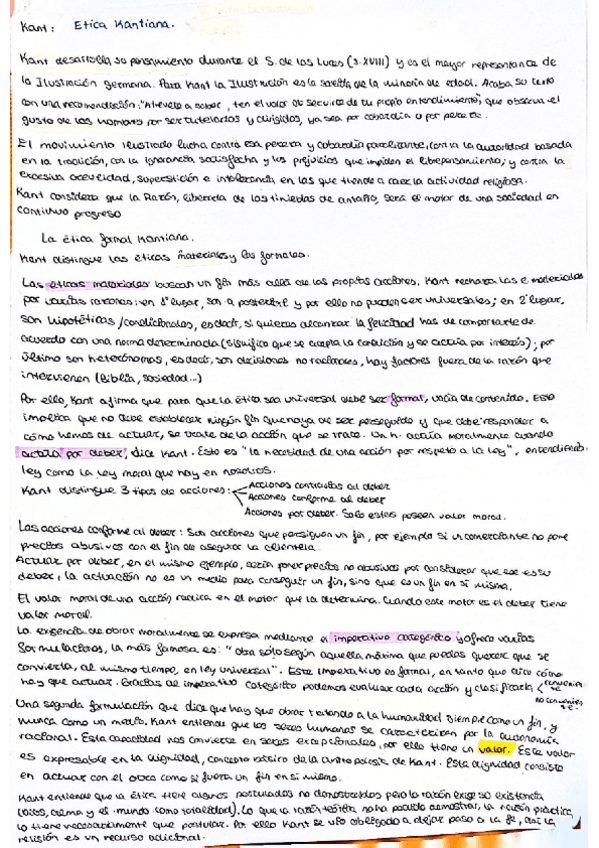 Kant: Etica Kantiana.
Kant desarrolla su pensamiento durante el S. de las Luces (s.XVIII) y es el mayor representante de
la Ilustración germana. Para Kant la Ilustración es la salida de la minoría de edad. Acaba su texto
con una recomendación: "Atrévete a saber, ten el valor de servirte de tu propio entendimiento", que observa el
gusto de los hombres por ser tutelados y dirigidos, ya sea por cobardía o por pereza.
El movimiento ilustrado lucha contra esa pereza y cobardía paralizante, contra la autoridad basada
en la tradición, con la ignorancia satisfecha y los prejuicios que impiden el librepensamiento; y contra la
excesiva credulidad, superstición e intolerancia en las que tiende a caer la actividad religiosa.
Kant considera que la Razón, liberada de las tinieblas de antaño, será el motor de una sociedad en
continuo progreso
La ética formal Kantiana.
Kant distingue las éticas materiales y las formales.
Las éticas materiales buscan un fin más allá de las propias acciones. Kant rechaza las e materiales
por varias razones: en 1º lugar, son a posteriori y por ello no pueden ser universales; en 2º lugar,
son hipotéticas/condicionales, es decir, si quieres alcanzar la felicidad has de comportarte de
acuerdo con una norma determinada (significa que se acepta la condición y se actúa por interés); por
último son heterónomas, es decir, son decisiones no racionales, hay factores fuera de la razón que
intervienen (Biblia, sociedad...)
Por ello, Kant afirma que para que la ética sea universal debe ser formal, vacía de contenido. Esto
implica que no debe establecer ningún fin que haya de ser perseguido y que debe responder a
cómo hemos de actuar, se trate de la acción que se trate. Un h. actúa moralmente cuando
actúa por deber, dice Kant. Esto es "la necesidad de una acción por respeto a la ley", entendiendo
ley como la ley moral que hay en nosotros.
Kant distingue 3 tipos de acciones: Acciones contrarias al deber
Acciones conforme al deber
Acciones por deber. Solo estas poseen valor moral.
Las acciones conforme al deber: Son acciones que persiguen un fin, por ejemplo si un comerciante no pone
precios abusivos con el fin de asegurar la clientela.
Actuar por deber, en el mismo ejemplo, sería poner precios no abusivos por considerar que ese es su
deber, la actuación no es un medio para conseguir un fin, sino que es un fin en si misma.
El valor moral de una acción radica en el motor que la determina. Cuando este motor es el deber tiene
valor moral.
La exigencia de obrar moralmente se expresa mediante el imperativo categórico y ofrece varias
formulaciones, la más famosa es: "Obra sólo según aquella máxima que puedas querer que se
convierta, al mismo tiempo, en ley universal". Este imperativo es formal, en tanto que dice cómo
hay que actuar. Gracias al imperativo categórico podemos evaluar cada acción y clasificarla
Una segunda formulación que dice que hay que obrar tratando a la humanidad siempre como un fin, y
nunca como un medio. Kant entiende que los seres humanos se caracterizan por la autonomía
racional. Esta capacidad nos convierte en seres excepcionales, por ello tiene un valor. Este valor
es expresable en la dignidad, concepto básico de la antropología de Kant. Esta dignidad consiste
en actuar con el otro como si fuera un fin en si mismo.
Kant entiende que la ética tiene algunos postulados no demostrados pero la razón exige su existencia
(dios, alma y el mundo como totalidad). Lo que la razón teórica no ha podido demostrar, la razón práctica
lo tiene necesariamente que postular. Por ello Kant se vio obligado a dejar paso a la fe, así la
religión es un recurso adicional.